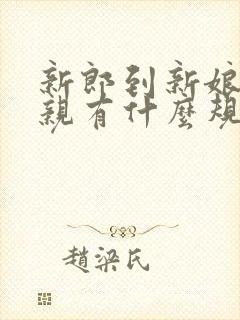 新郎到新娘
親有什麼規
趙梁氏